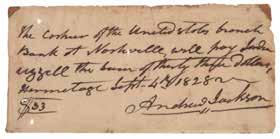 The Cashier of the United States branch
Bank at Nashville will pay
the sum of thirty three dollars
Hermitage Sept. 4th 1828
$33
Andrew Jackson